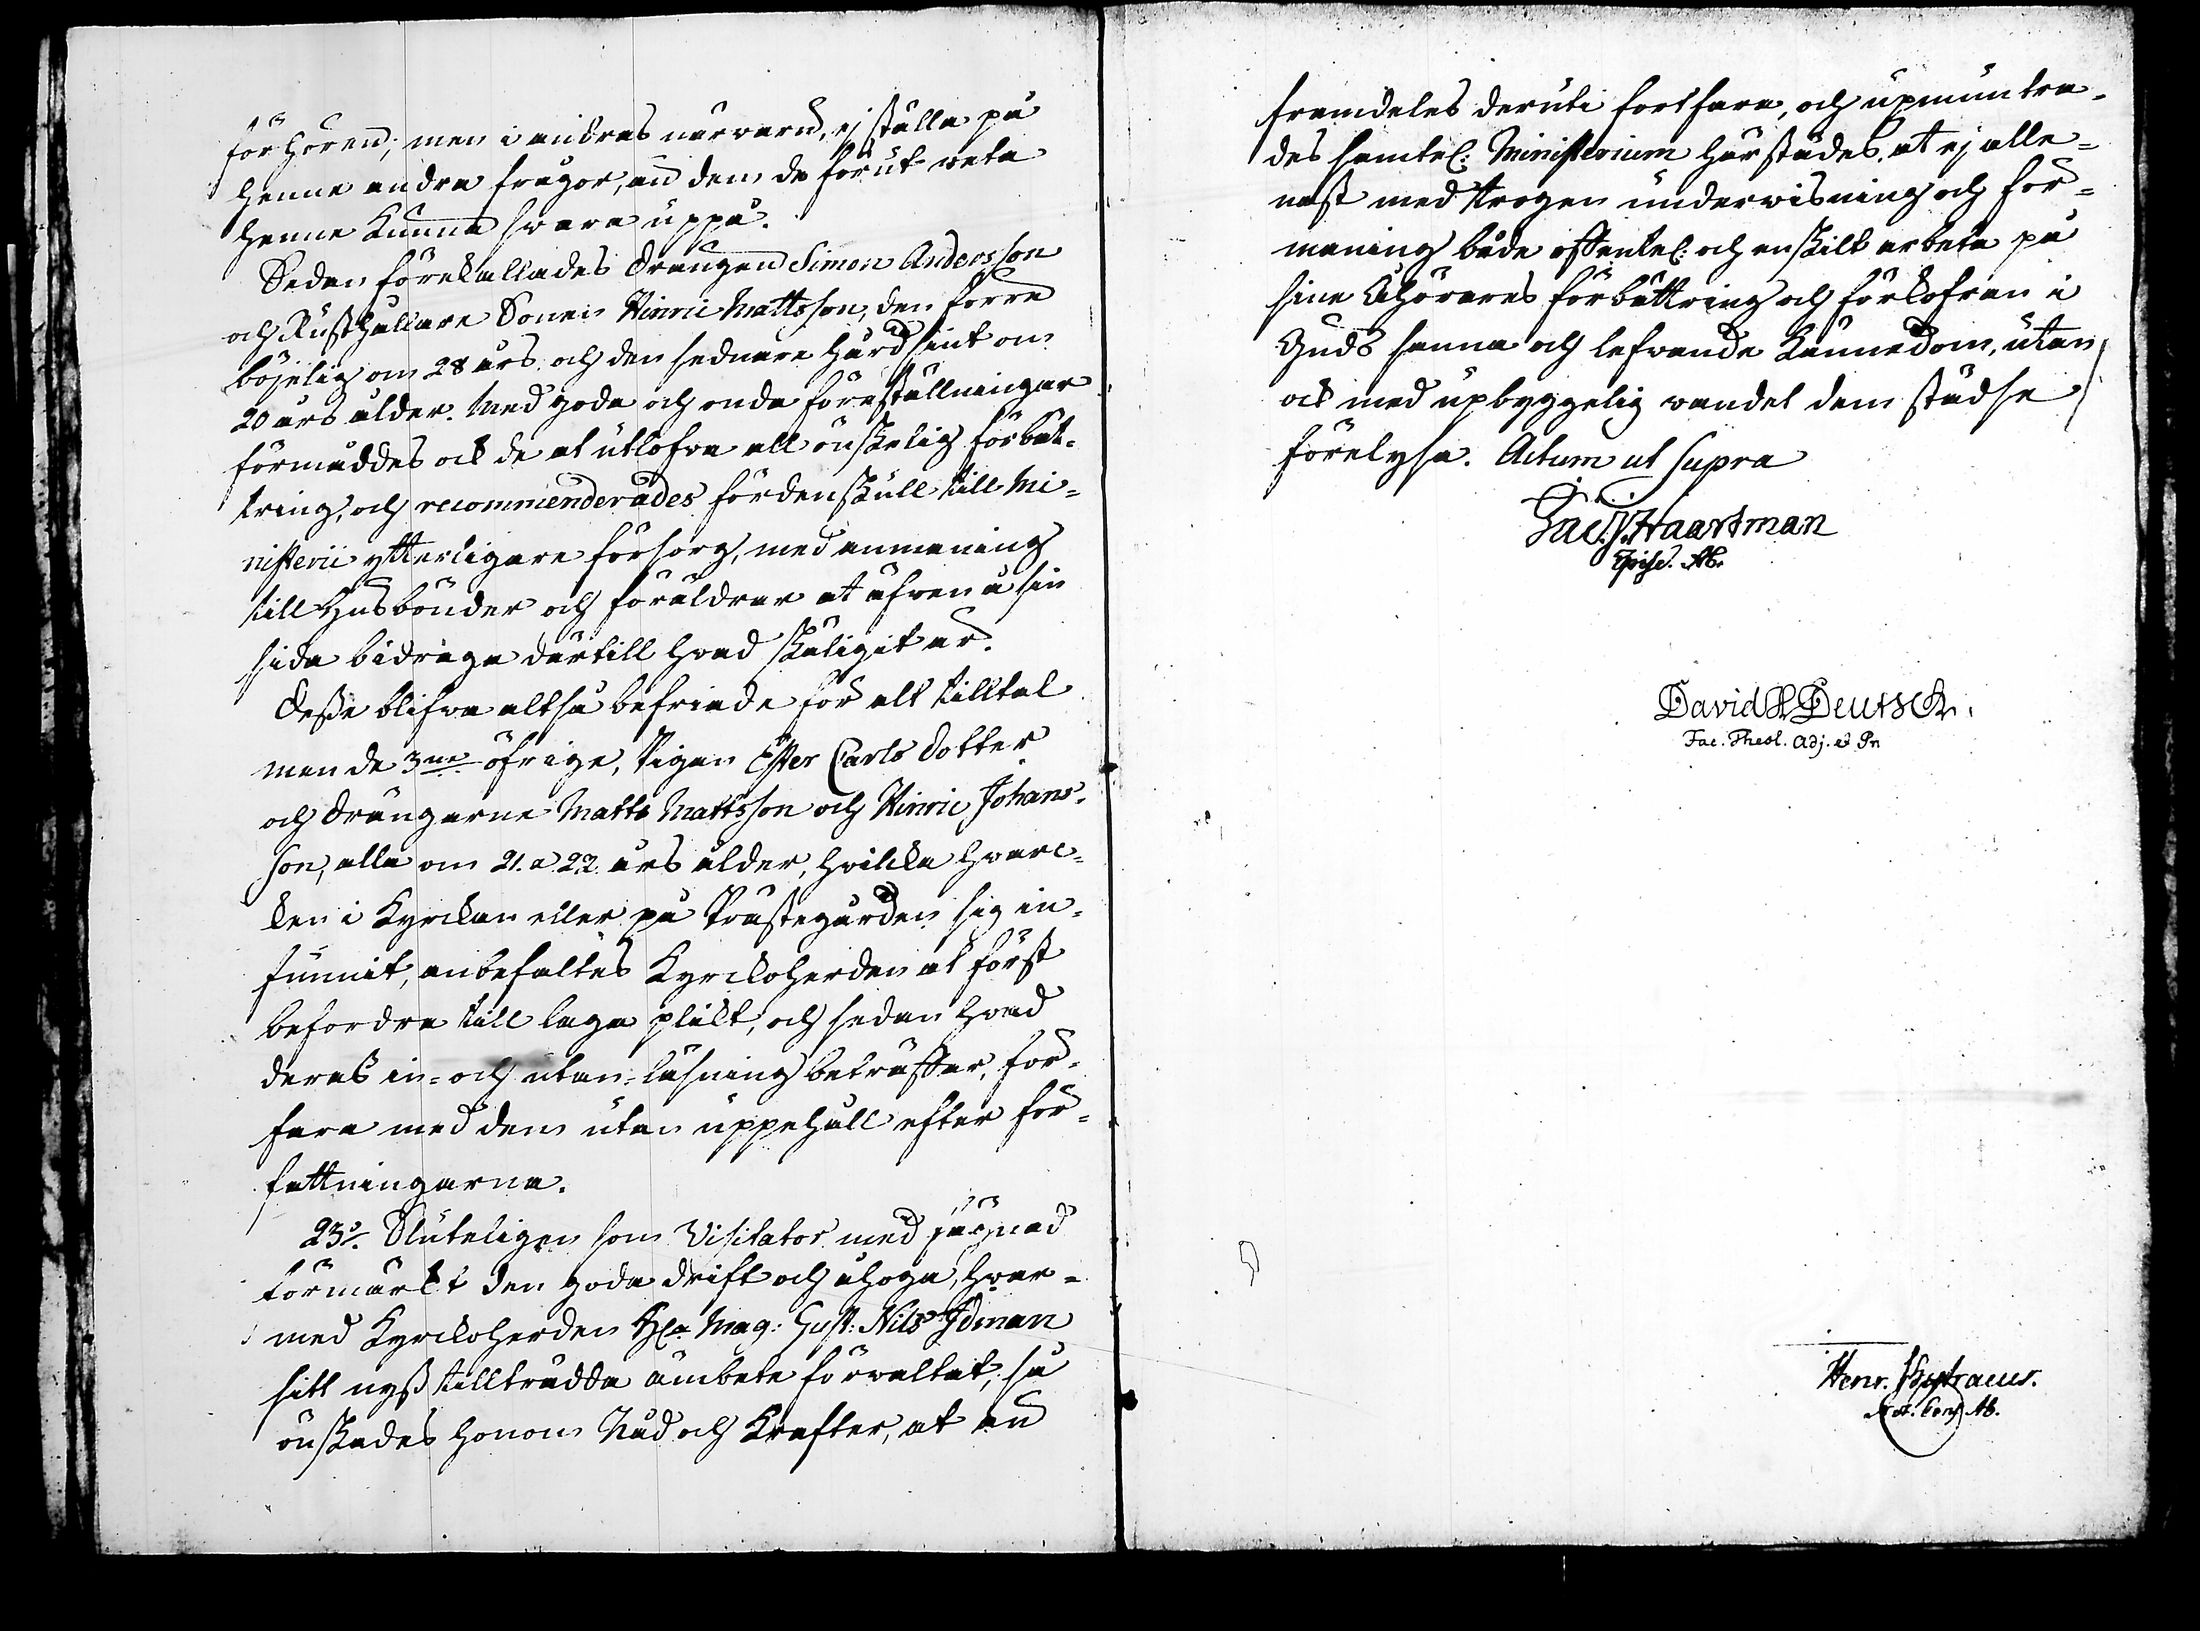 förhören; men i andras närvaro, ej ställa på
henne andra frågor, än dem de förut veta
henne kunna svara uppå.
Sedan förekallades drängen Simon Andersson
och Rusthållare Sonen Hinric Mattsson, den förre
böjelig om 28 års och den sednare hårdsint om
20 års ålder. Med goda och onda föreställningar
förmåddes ock de at utlofva all önskelig förbät-
tring, och recommenderades fördenskull till Mi-
nisterii ytterligare försorg, med anmaning
till Husbönder och föräldrar at äfven å sin
sida bidraga dertill hvad skäligit är.
Desse blifva altså befriade för alt tilltal
men de 3ne öfrige, Pigan Ester Carls dotter
och drängarne Matts Mattsson och Hinric Johans-
son, alla om 21. a 22. års ålder, hvilcka hvarc-
ken i Kyrckan eller på Prästegården sig in-
funnit, anbefaltes Kyrckoherden at först
befordra till laga plikt, och sedan hvad
deras in- och utan-läsning beträffar, för-
fara med dem utan uppehåll efter för-
fattningarna.
23:o Sluteligen som Visitator med fägnad
förmärkt den goda drift och åhoga, hvar-
med Kyrckoherden H:r Mag: Gust: Nils Idman
sitt nyss tillträdda ämbete förvaltat; så
önskades honom Nåd och Krafter, at än
framdeles deruti fortfara, och upmuntra-
des samtel: Ministerium härstädes, at ej alle-
nast med trogen undervisning och för-
maning både offentel: och enskilt arbeta på
sine Åhörares förbättring och förkofran i
Guds sanna och lefvande kännedom, utan
ock med upbyggelig vandel dem städse
förelysa. Actum ut supra
Jac. Haartman
Episc. Ab.
David H Deutsch.
Fac. Theol. Adj. et Pn
Henr.
Not. Cons. Ab.